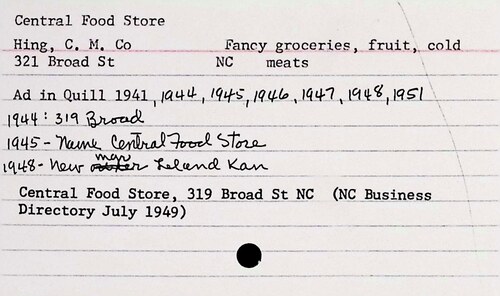 Central Food Store
Hing, C. M. Co Fancy groceries, fruit, cold
321 Broad St NC meats
Ad in Quill 1941, 1944, 1945, 1946, 1947, 1948, 1951
1944: 319 Broad
1945- Name Central Food Store
1948- New mgr Leland Kan
Central Food Store, 319 Broad St NC (NC Business
Directory July 1949)